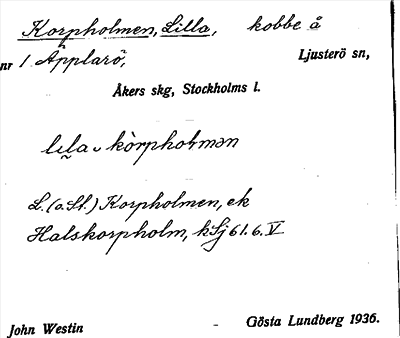 Korpholmen, Lilla, kobbe å
nr 1 Äpplarö, Ljusterö sn,
Åkers skg, Stockholms l.
lıla kòrpholmən
L. (o. St.) Korpholmen, ek
Halskorpholm, kSj 61.6.V
John Westin - Gösta Lundberg 1936.